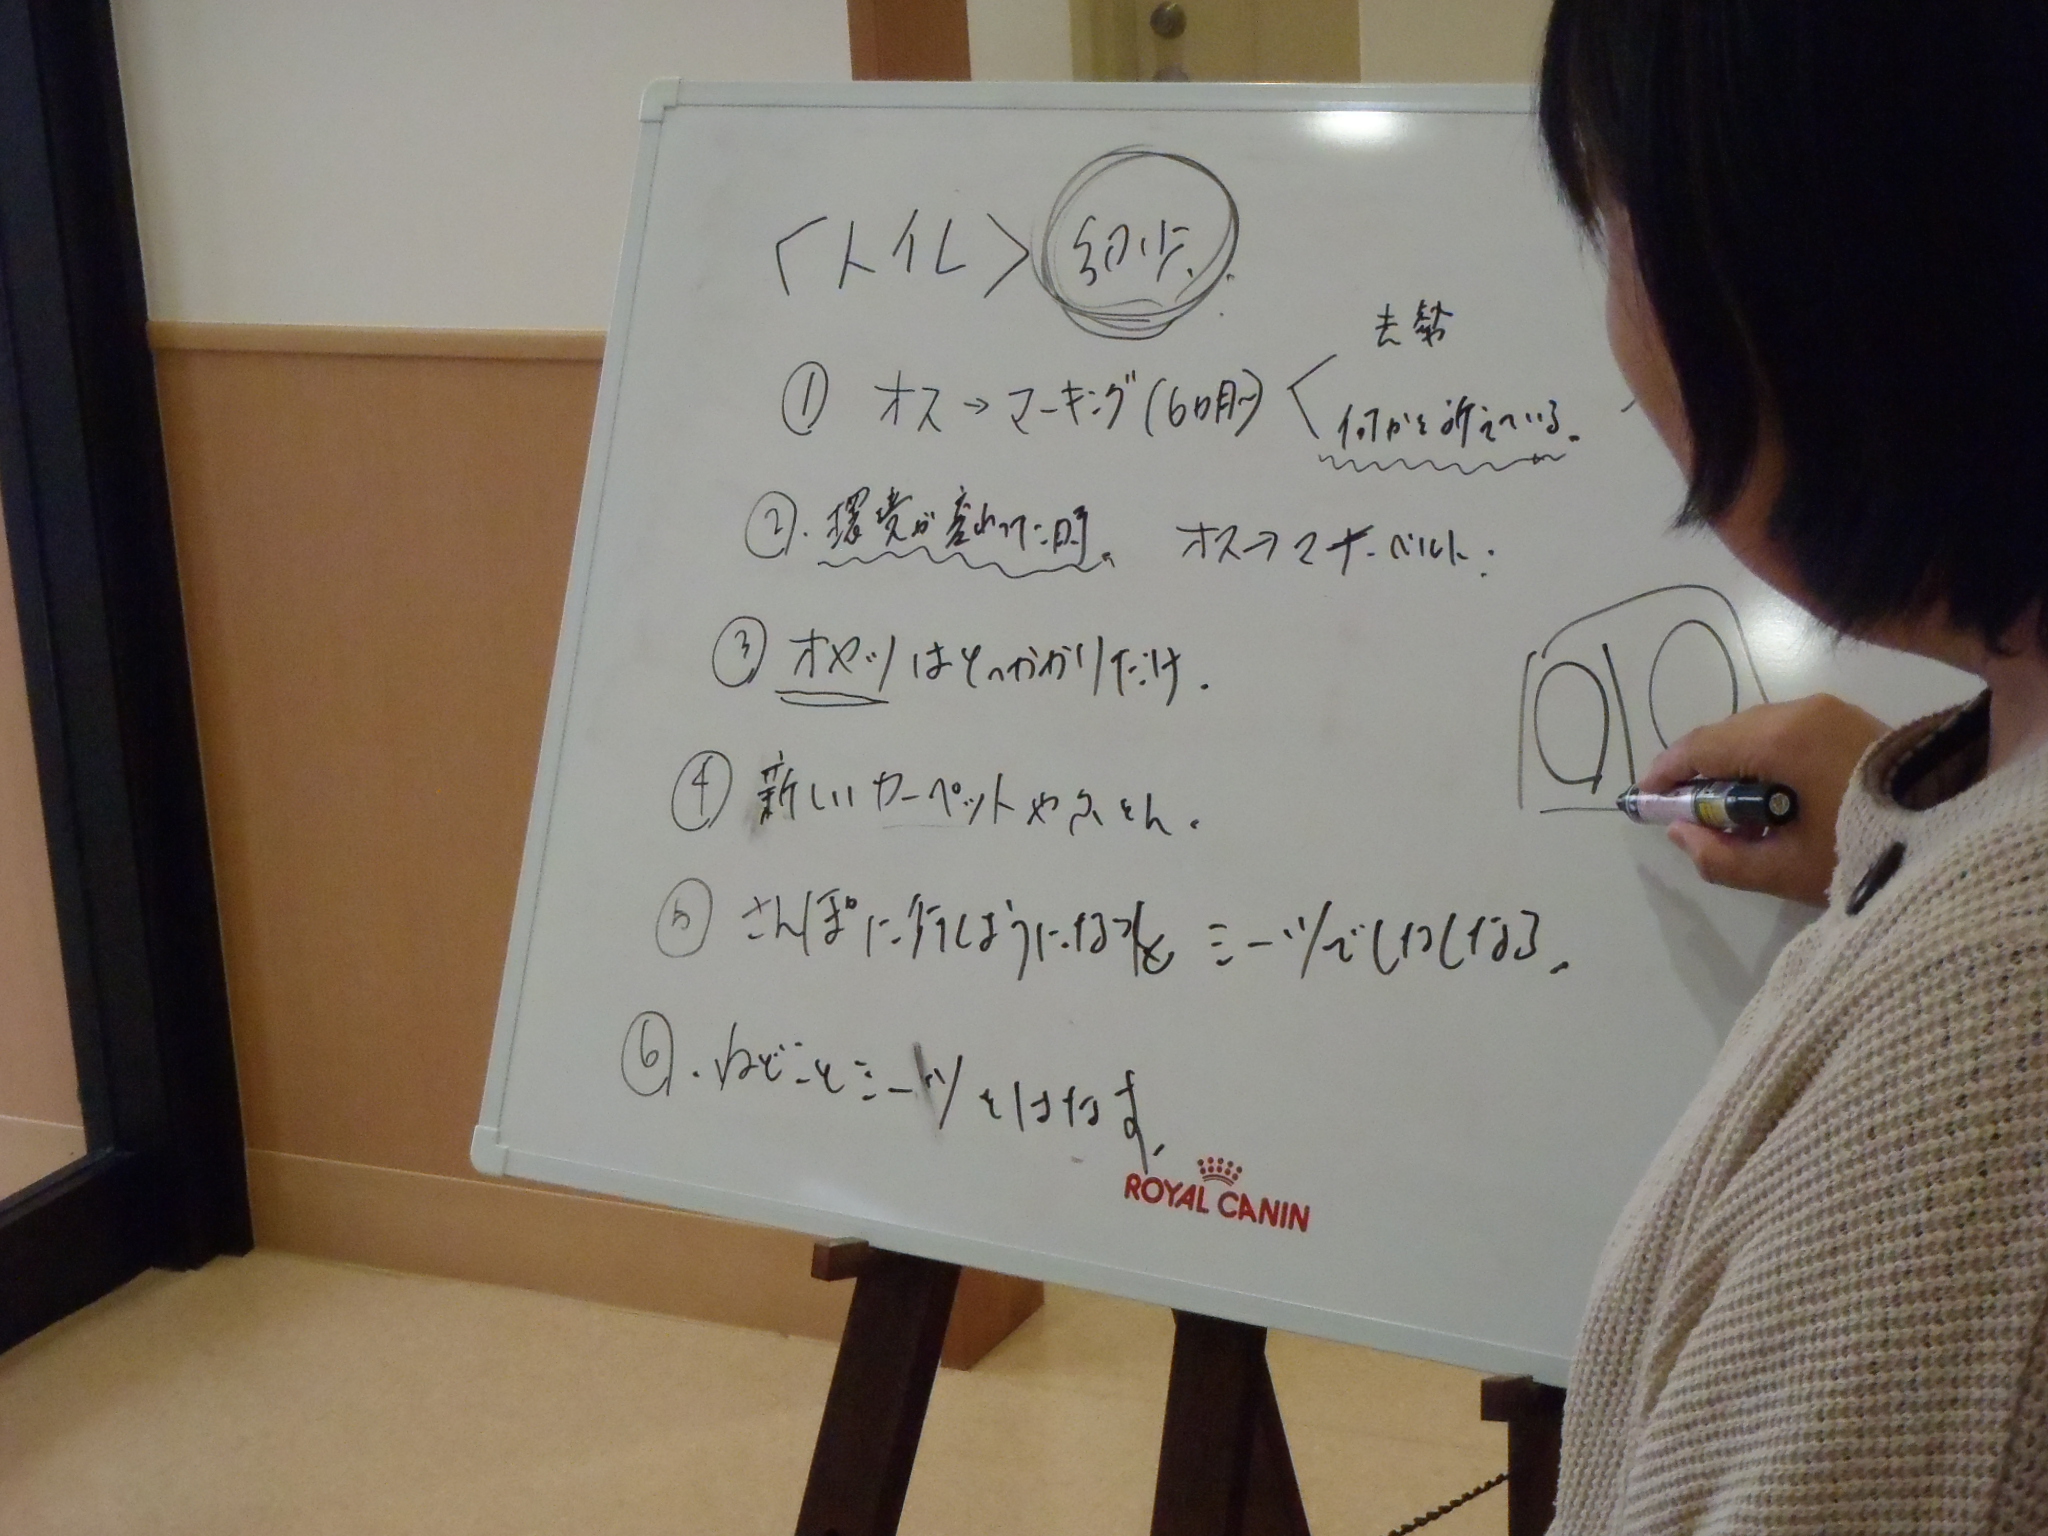 〈トイレ〉 幼少
去勢
① オス→マーキング(6ヵ月〜)
何かを訴えている。
②. 環境が変わった時。 オス→マナーベルト.
③ オヤツはとっかかりだけ.
④ 新しいカーペットやふとん.
⑤ さんぽに行くようになると シーツでしなくなる.
⑥. ねどことシーツをはなす.
ROYAL CANIN